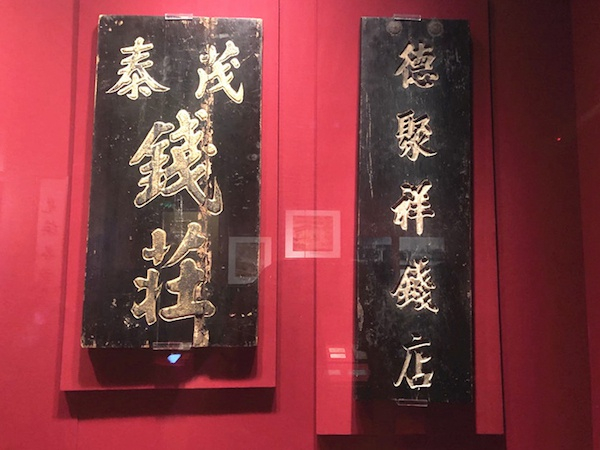 茂泰
錢莊
德聚祥錢店